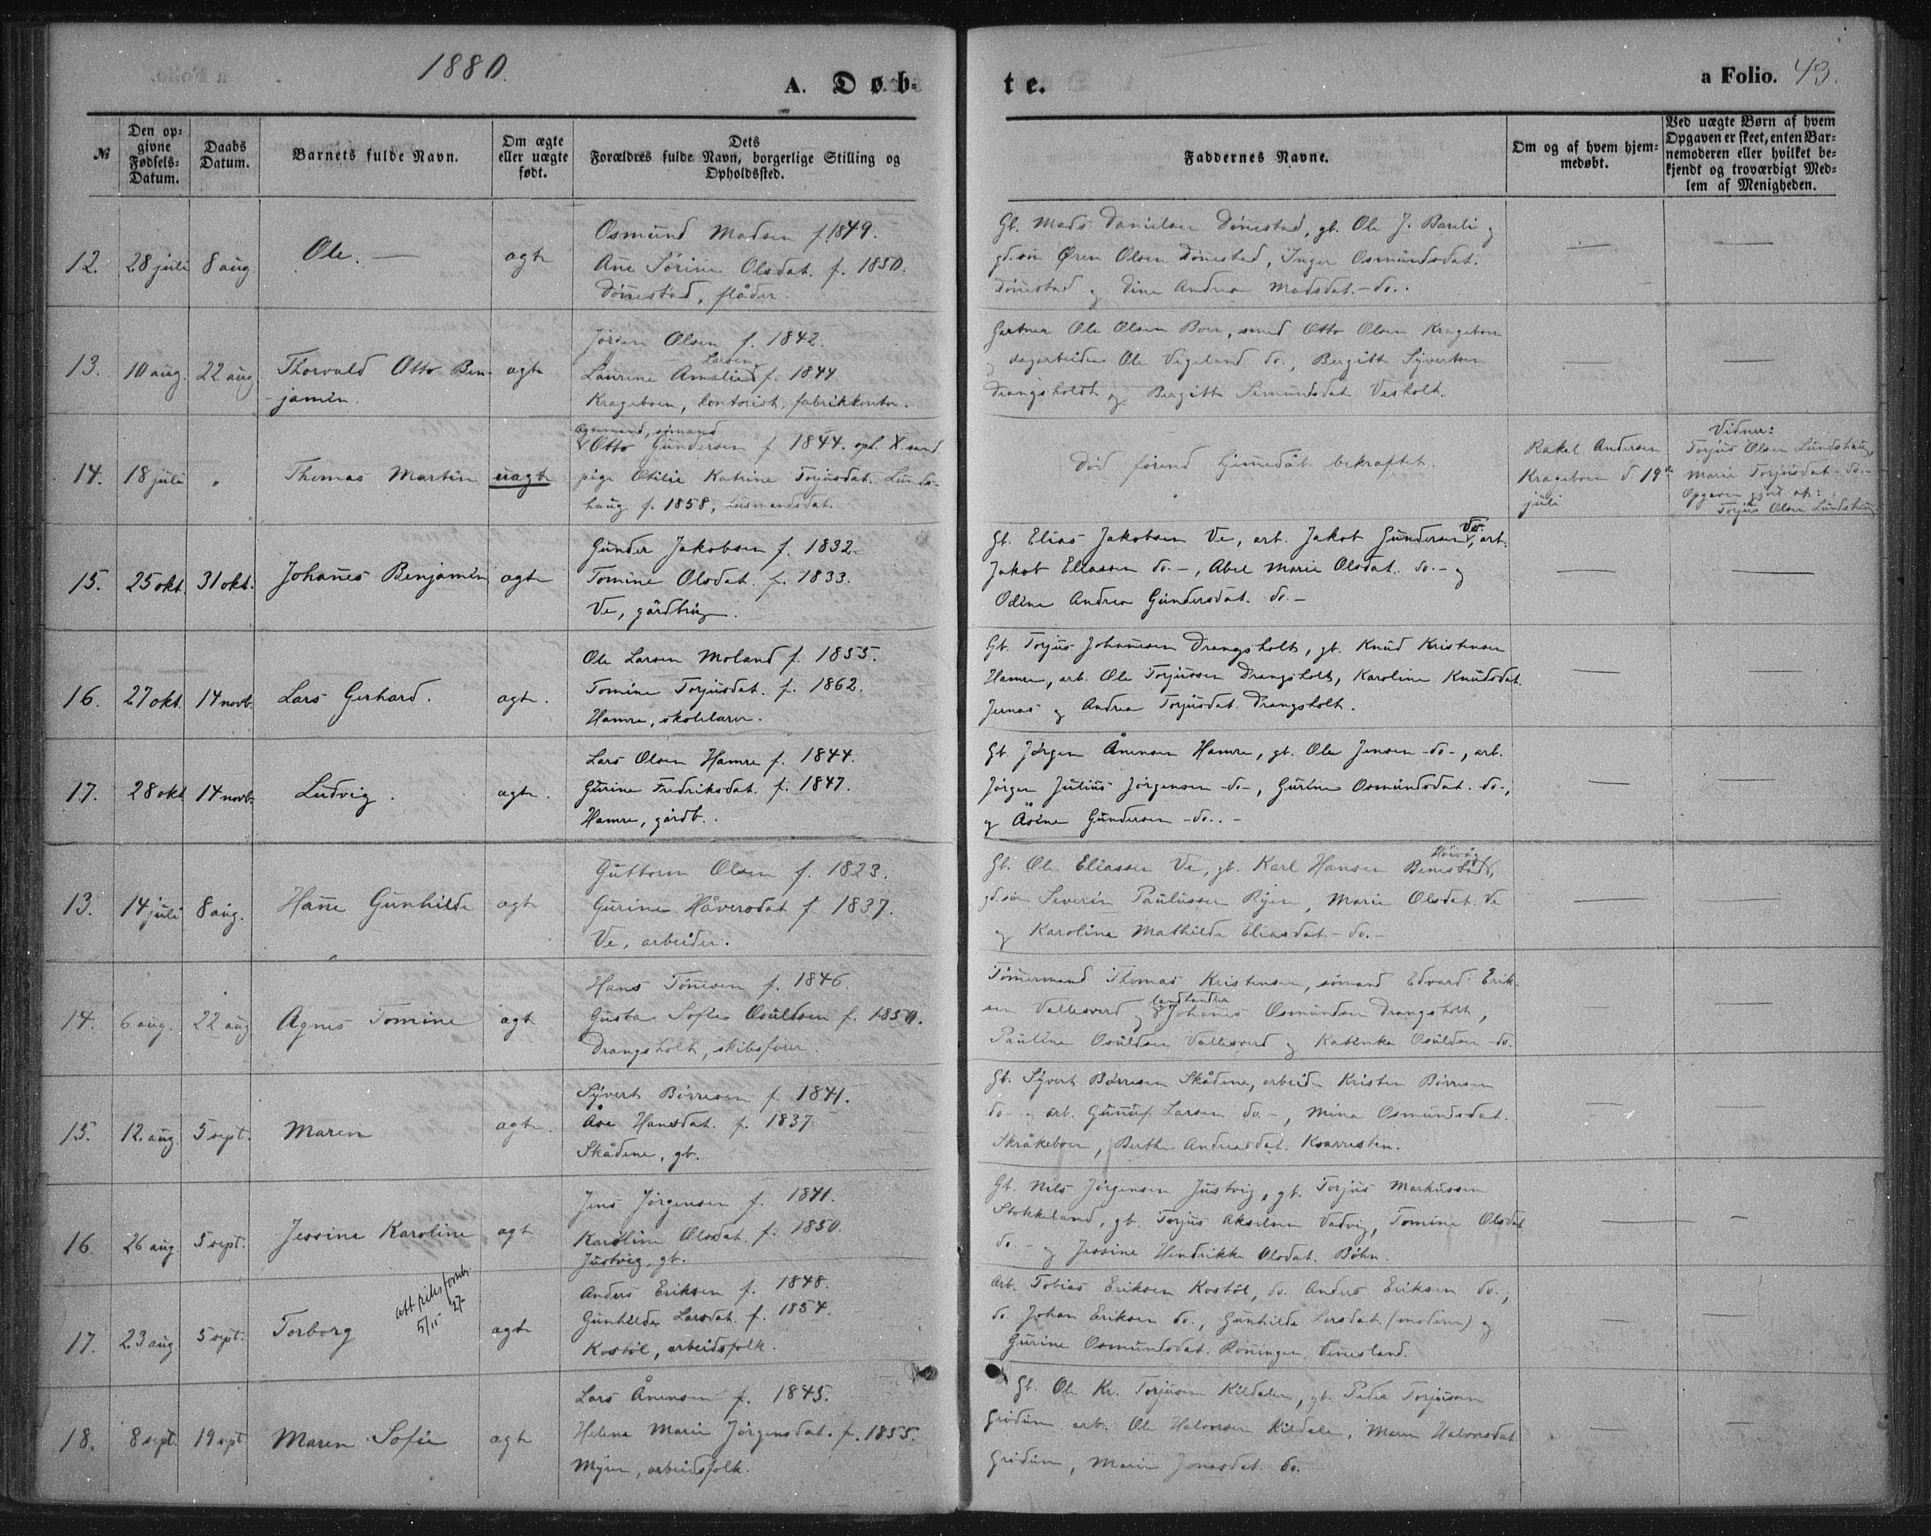 1880.
A. Døb-
te.
a Folio. 43.
№
Den op-
givne
Fødsels-
Datum.
Daabs
Datum.
Barnets fulde Navn.
Om ægte
eller uægte
født.
Dets
Forældres fulde Navn, borgerlige Stilling og
Opholdssted.
Faddernes Navne.
Om og af hvem hjem-
medøbt.
Ved uægte Børn af hvem
Opgaven er skeet, enten Bar-
nemoderen eller hvilket be-
kjendt og troværdigt Med-
lem af Menigheden.
12. 28 juli 8 aug. Ole. — ægte
Osmund Madsen f. 1849.
Ane Sørine Olsdat. f. 1850.
Dönnestad, flåder.
Gb. Mads Danielsen Dönnestad, gb. Ole J. Barli og
gd.søn Ören Olsen Dönnestad, Inger Osmundsdat.
Dönnestad og Dine Andrea Madsdat. - do. - — —
13. 10 aug. 22 aug. Thorvald Otto Ben-
jamin. ægte
Jörgen Olsen f. 1842.
Laurine Amalie Larsen f. 1844.
Krageboen, kontorist, fabrikkontor.
Gartner Ole Olsen Boen, smed Otto Olsen Krageboen
og dagarbeider Ole Vigeland do., Bergitte Syvertsen
Drangsholdt og Bergitte Simundsdat. Vesholt. — —
14. 18 juli " Thomas Martin uægte
Otto Gundersen f. 1844. opl. X.sand
pige Otilie Katrine Torjusdat. Lunds-
haug f. 1858, husmandsdat.
Död förend hjemmedåb bekræftet.
Rakel Andersen
Krageboen d. 19de
juli
Vidner:
Torjus Olsen Lundshaug,
Marie Torjusdat - do. -
Opgaven gjort af:
Torjus Olsen Lundshaug
15. 25 okt. 31 okt. Johannes Benjamin ægte
Gunder Jakobsen f. 1832.
Tomine Olsdat. f. 1833.
Ve, gårdbrug.
Gb. Elias Jakobsen Ve, arb. Jakob Gundersen Ve, arb.
Jakob Eliassen do. -, Abel Marie Olsdat. do. - og
Odine Andrea Gundersdat. do. - — —
16. 27 okt. 14 novb. Lars Gerhard. ægte.
Ole Larsen Moland f. 1855.
Tomine Torjusdat. f. 1862.
Hamre, skolelærer.
Gb. Torjus Johannesen Drangsholt, gb. Knud Kristensen
Hamre, arb. Ole Torjussen Drangsholt, Karoline Knudsdat.
Jernæs og Andrea Torjusdat. Drangsholt. — —
17. 28 okt 14 novb. Ludvig. ægte.
Lars Olsen Hamre f. 1844.
Gurine Fredriksdat. f. 1847.
Hamre, gårdb.
Gb. Jörgen Ånensen Hamre, gb. Ole Jensen - do -, arb.
Jörgen Julius Jörgensen - do -, Gurine Osmundsdat. - do -,
og Åsine Gundersen - do. - — —
13. 14 juli 8 aug. Hanne Gunhilde ægte
Guttorm Olsen f. 1823.
Gurine Håversdat f. 1837.
Ve, arbeider.
Gb. Ole Eliassen Ve, gb. Karl Hansen Benestad, Höivåg
gd.søn Severin Paulussen Ryen, Marie Olsdat. Ve
og Karoline Mathilde Eliasdat - do. - — —
14. 6 aug. 22 aug Agnes Tomine ægte
Hans Tönnesen f. 1846.
Gusta Sofie Osuldsen f. 1850.
Drangsholt, skibsförer.
Tömmermand Thomas Kristensen, sømand Edvard Erik-
sen Vallesverd og landhandler Johannes Osmundsen Drangsholt,
Pauline Osuldsen Vallesverd og Kathinka Osuldsen - do. —
15. 12. aug 5 sept. Maren ægte.
Syvert Börresen f. 1841.
Åse Hansdat. f. 1837
Skådene, gb.
Gb. Syvert Börresen Skådene, arbeid. Kristen Börresen
do - , arb. Gunuf Larsen do -, Mina Osmundsdat.
Skråkeboen, Berthe Andreasdat. Kvarresten. — —
16. 26 aug. 5 sept. Jessine Karoline ægte
Jens Jörgensen f. 1841.
Karoline Olsdat. f. 1850.
Justvig, gb.
Gb. Nils Jörgensen Justvig, gb. Torjus Markussen
Stokkeland, gb. Torjus Akselsen Vadvig, Tomine Olsdat
do. - og Jessine Hendrikke Olsdat. Böhn. — —
17. 23 aug 5 sept. Torborg ægte
5/11 27
Anders Eriksen f. 1848.
Gunhilde Larsdat. f. 1854.
Kostöl, arbeidsfolk.
Arb. Tobias Eriksen Kostöl, do. Anders Eriksen do.,
do. Johan Eriksen do., Gunhilde Larsdat (moderen) og
Gurine Osmundsdat. Röningen Vennesland. — —
18. 8 sept. 19 sept Maren Sofie ægte
Lars Ånensen f. 1845.
Helene Marie Jörgensdat. f. 1855.
Myren, arbeidsfolk.
Gb. Ole Kr. Torjusen Kildalen, gb. Peder Torjusen
Grödum, arb. Ole Halvorsen Kildalen, Maren Halvorsdat.
Grödum, Marie Jonasdat. do. — —